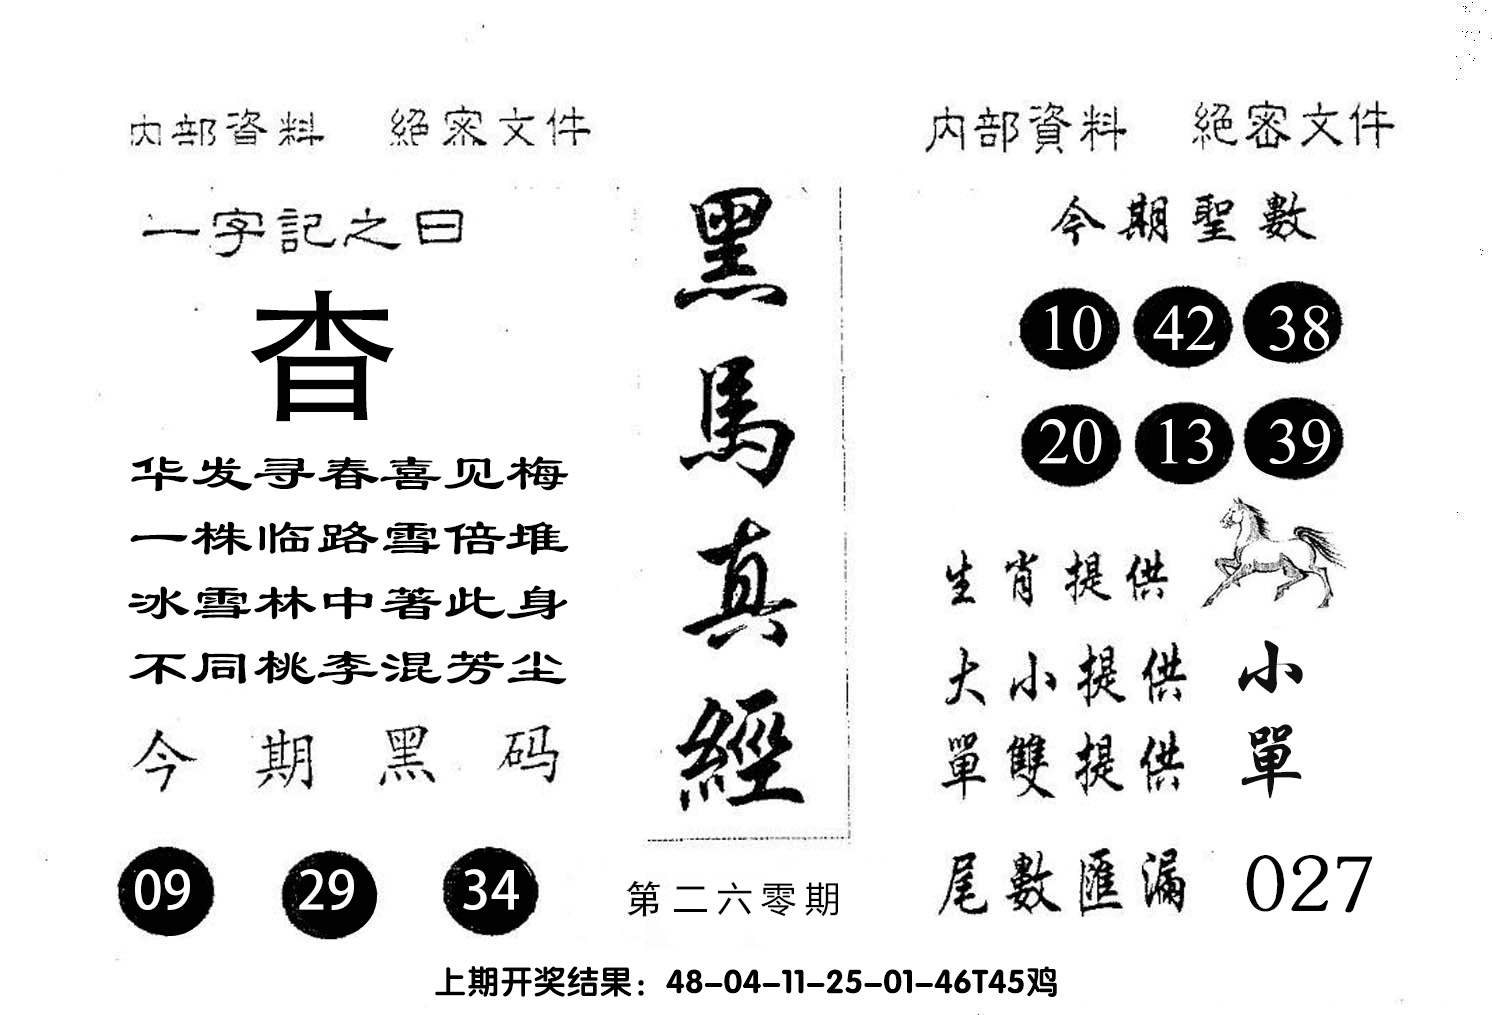 内部資料 絕密文件
一字記之曰
杳
华发寻春喜见梅
一株临路雪倍堆
冰雪林中著此身
不同桃李混芳尘
今期黑码
09 29 34
黑馬真經
第二六零期
内部資料 絕密文件
今期聖數
10 42 38
20 13 39
生肖提供
大小提供 小
單雙提供 單
尾數匯漏 027
上期开奖结果：48-04-11-25-01-46T45鸡